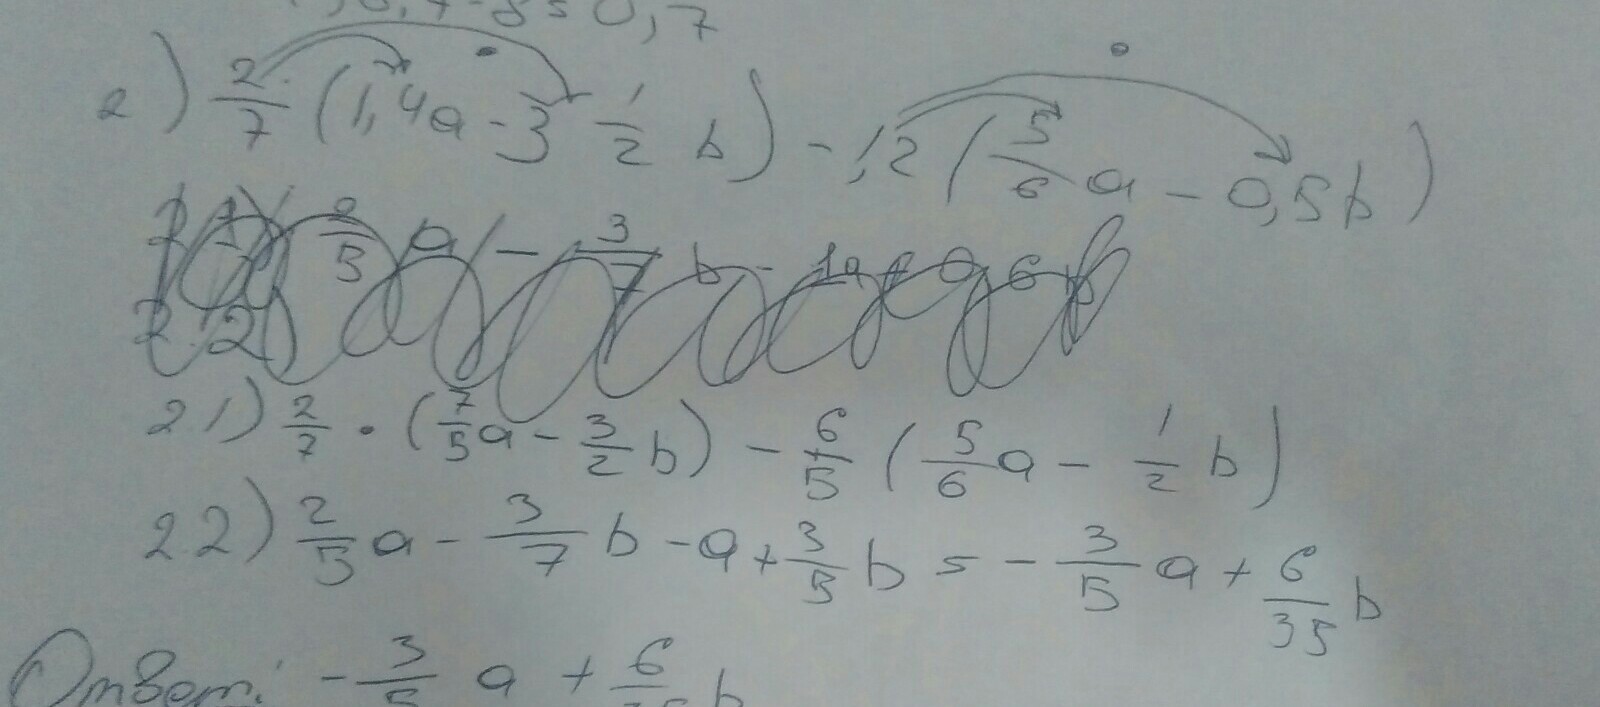 2) 2/7 (1,4a - 3 1/2 b) - 1,2 (5/6 a - 0,5b)
2.1) 2/7 · (7/5 a - 3/2 b) - 6/5 (5/6 a - 1/2 b)
2.2) 2/5 a - 3/7 b - a + 3/5 b = - 3/5 a + 6/35 b
Ответ: - 3/5 a + 6/35 b